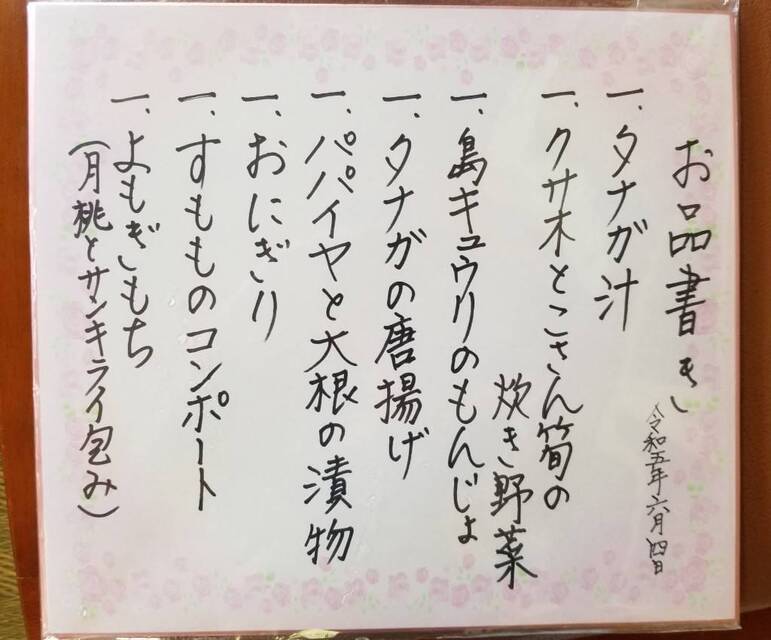 お品書き
令和五年六月四日
一、タナガ汁
一、クサ木とこさん筍の
炊き野菜
一、島キュウリのもんじょ
一、タナガの唐揚げ
一、パパイヤと大根の漬物
一、おにぎり
一、すもものコンポート
一、よもぎもち
(月桃とサンキライ包み)